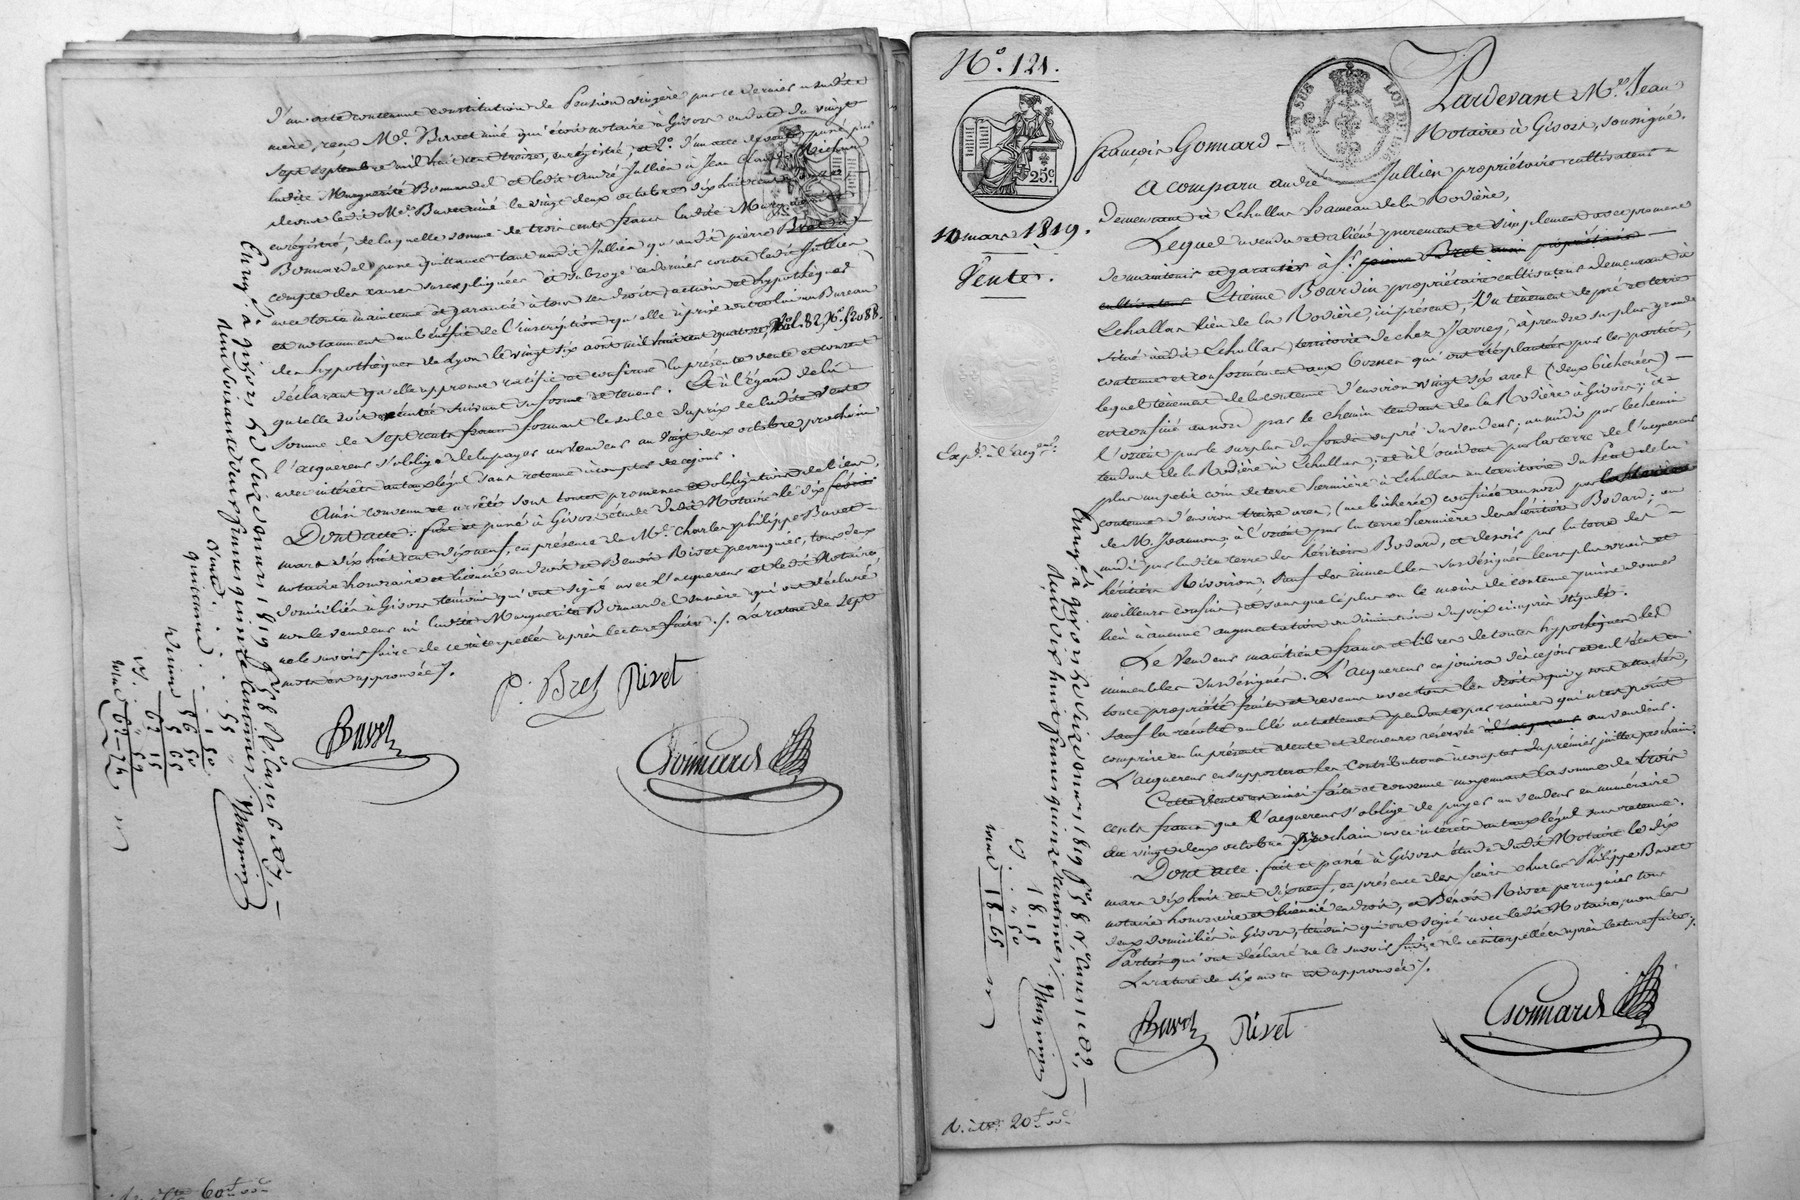 D'un acte contenant constitution de Pension viagère par ce dernier a sadite
mère, reçu Me. Buvet ainé qui étoit notaire à Givors en date du vingt
sept septembre mil huit cent treize, enrégistré; et 2º. d'un acte de
ladite Marguerite Bonnardel et ledit André Jullien à Jean Claude
devant ledit Me. Buvet ainé le vingt deux octobre dix huit cent
enregistré, de laquelle somme de trois cents francs ladite Marguerite
Bonnardel passe quittance tant audit Jullien qu'audit pierre Bret
compte des causes sus expliquées et subroge ce dernier contre ledit Jullien
avec toute maintenue et garantie à tous ses droits, actions et hypothèques
et notamment au bénéfice de l'inscription qu'elle a prise contre lui au Bureau
des hypothèques de Lyon le vingt six août mil huit cent quatorze, Vol. 82, Nº. 52088.
déclarant qu'elle approuve ratifie et confirme la présente vente et consent
qu'elle soit exécutée suivant sa forme et teneur. Et à l'égard de la
somme de sept cents francs formant le solde du prix de ladite vente
l'acquereur s'oblige de la payer au vendeur au vingt deux octobre prochain
avec intérêts au taux légal sans retenue à compter de ce jour.
Ainsi convenu et arrêté sous toutes promesses et obligations de biens.
Dont acte: fait et passé à Givors étude dudit Notaire le dix
mars dix huit cent dix neuf, en présence de Me. Charles philippe Buvet
notaire honoraire et licencié en droit et Benoit Rivet perruquier, tous deux
domiciliés à Givors témoins qui ont signé avec l'acquereur et ledit Notaire,
non le vendeur ni ladite Marguerite Bonnardel sa mère qui ont déclaré
ne le savoir faire de ce interpellés après lecture faite ./. La rature de sept
mots est approuvée ./.
P. Bret Rivet
Buvet
Gonnard
Enregé. à givors le
60f 00c
Nº. 121.
25c
10 mars 1819.
Vente.
Pardevant Me. Jean
françois Gonnard Notaire à Givors, soussigné.
A comparu André Jullien propriétaire cultivateur
demeurant à Echallas hameau de la Rodière,
Lequel a vendu et aliéné purement et simplement avec promesse
de maintenir et garantir à Sr. pierre Bret propriétaire
cultivateur Etienne Bourdin propriétaire cultivateur demeurant à
Echallas lieu de la Rodière, ici présent, Un tènement de pré et terre
situé audit Echallas, territoire de chez Jarrey, à prendre sur plus grande
contenue et conformément aux bornes qui ont été plantées par les parties,
lequel tènement de la contenue d'environ vingt six ares (deux bicherées)
est confiné au nord par le chemin tendant de la Rodière à Givors; et
l'orient par le surplus du fonds en pré du vendeur; au midi par le chemin
tendant de la Rodière à Echallas; et à l'occident par la terre de l'acquereur
plus un petit coin de terre hermière à Echallas au territoire du
contenue d'environ treize ares, (une bicherée) confinée au nord par
de M. Jeannon; à l'orient par la terre hermière des héritiers Bodard; au
midi par ladite terre des héritiers Bodard, et de soir par la terre des
héritiers Rivoiron; Sauf des immeubles sus désignés leurs plus vrais et
meilleurs confins, et sans que le plus ou le moins de contenue puisse donner
lieu à aucune augmentation ou diminution du prix ci après stipulé.
Le Vendeur maintient francs et libres de toutes hypothèques les
immeubles sus désignés. L'acquereur en jouira dès ce jour et en l'état en
toute propriété fruits et revenus avec tous les droits qui y sont attachés,
sauf la récolte en blé actuellement pendante par racines qui n'est point
comprise en la présente vente et demeure réservée à l'acquereur au vendeur.
L'acquereur en supportera les Contributions à compter du premier juillet prochain.
Cette vente est ainsi faite et convenue moyennant la somme de trois
cents francs que l'acquereur s'oblige de payer au vendeur en numéraire
au vingt deux octobre prochain avec intérêts au taux légal sans retenue.
Dont acte. fait et passé à Givors étude dudit Notaire le dix
mars dix huit cent dix neuf, en présence des sieurs Charles Philippe Buvet
notaire honoraire et licencié en droit, et Benoit Rivet perruquier tous
deux domiciliés à Givors, témoins qui ont signé avec ledit Notaire, non les
Parties qui ont déclaré ne le savoir faire de ce interpellées après lecture faite ./.
La rature de six mots est approuvée ./.
Buvet Rivet
Gonnard
20f 00c